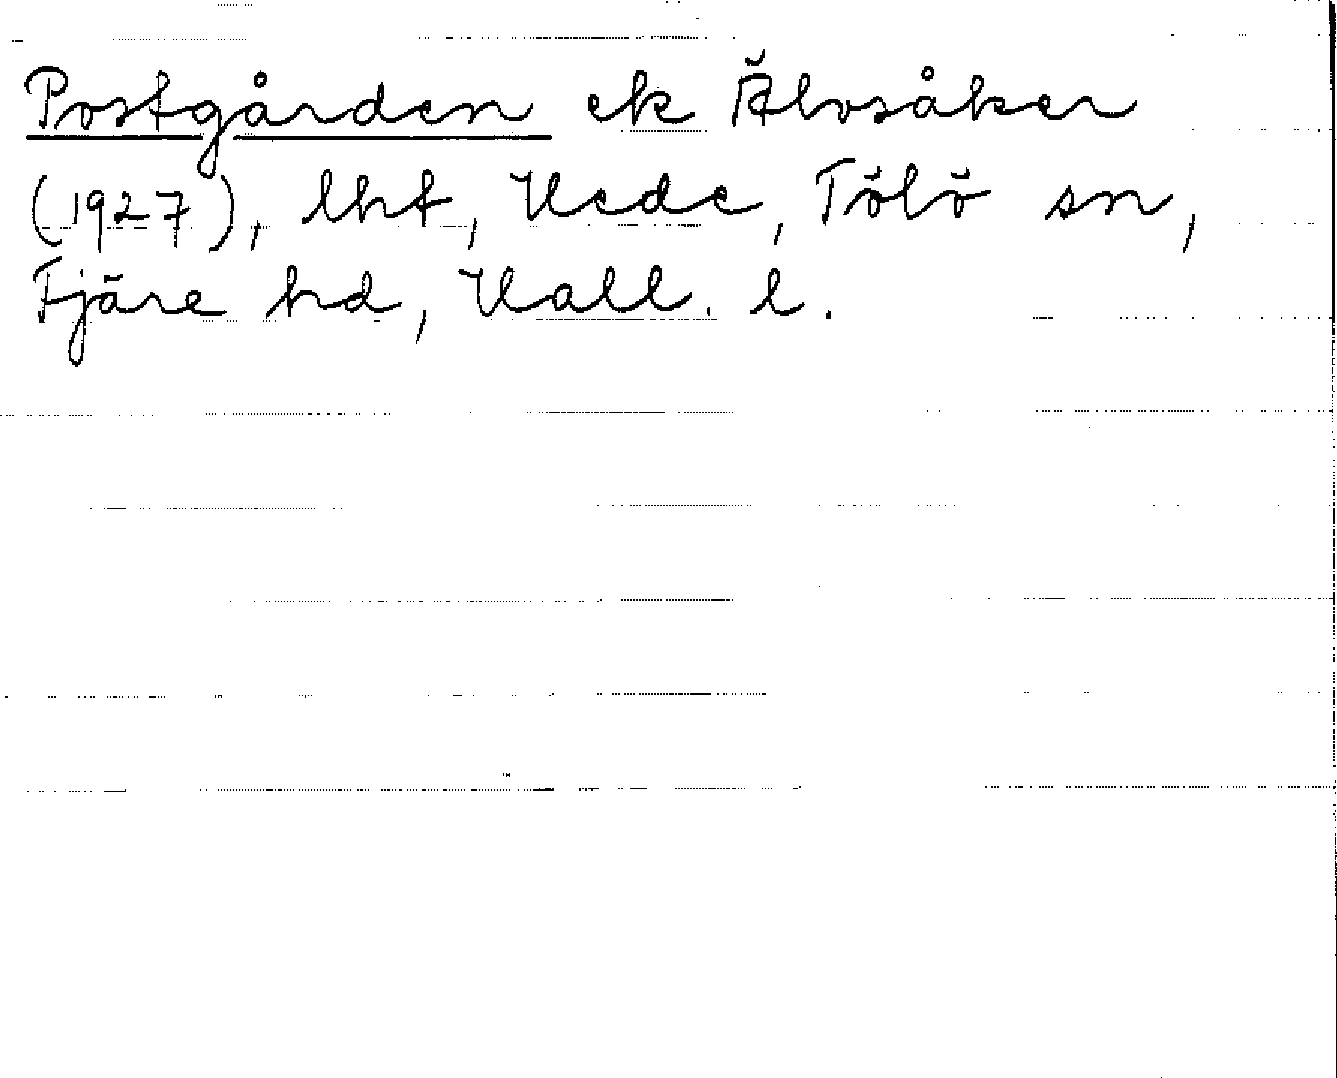 Postgården ek Älvsåker
(1927), lht, Hede, Tölö sn,
Fjäre hd, Hall. l.